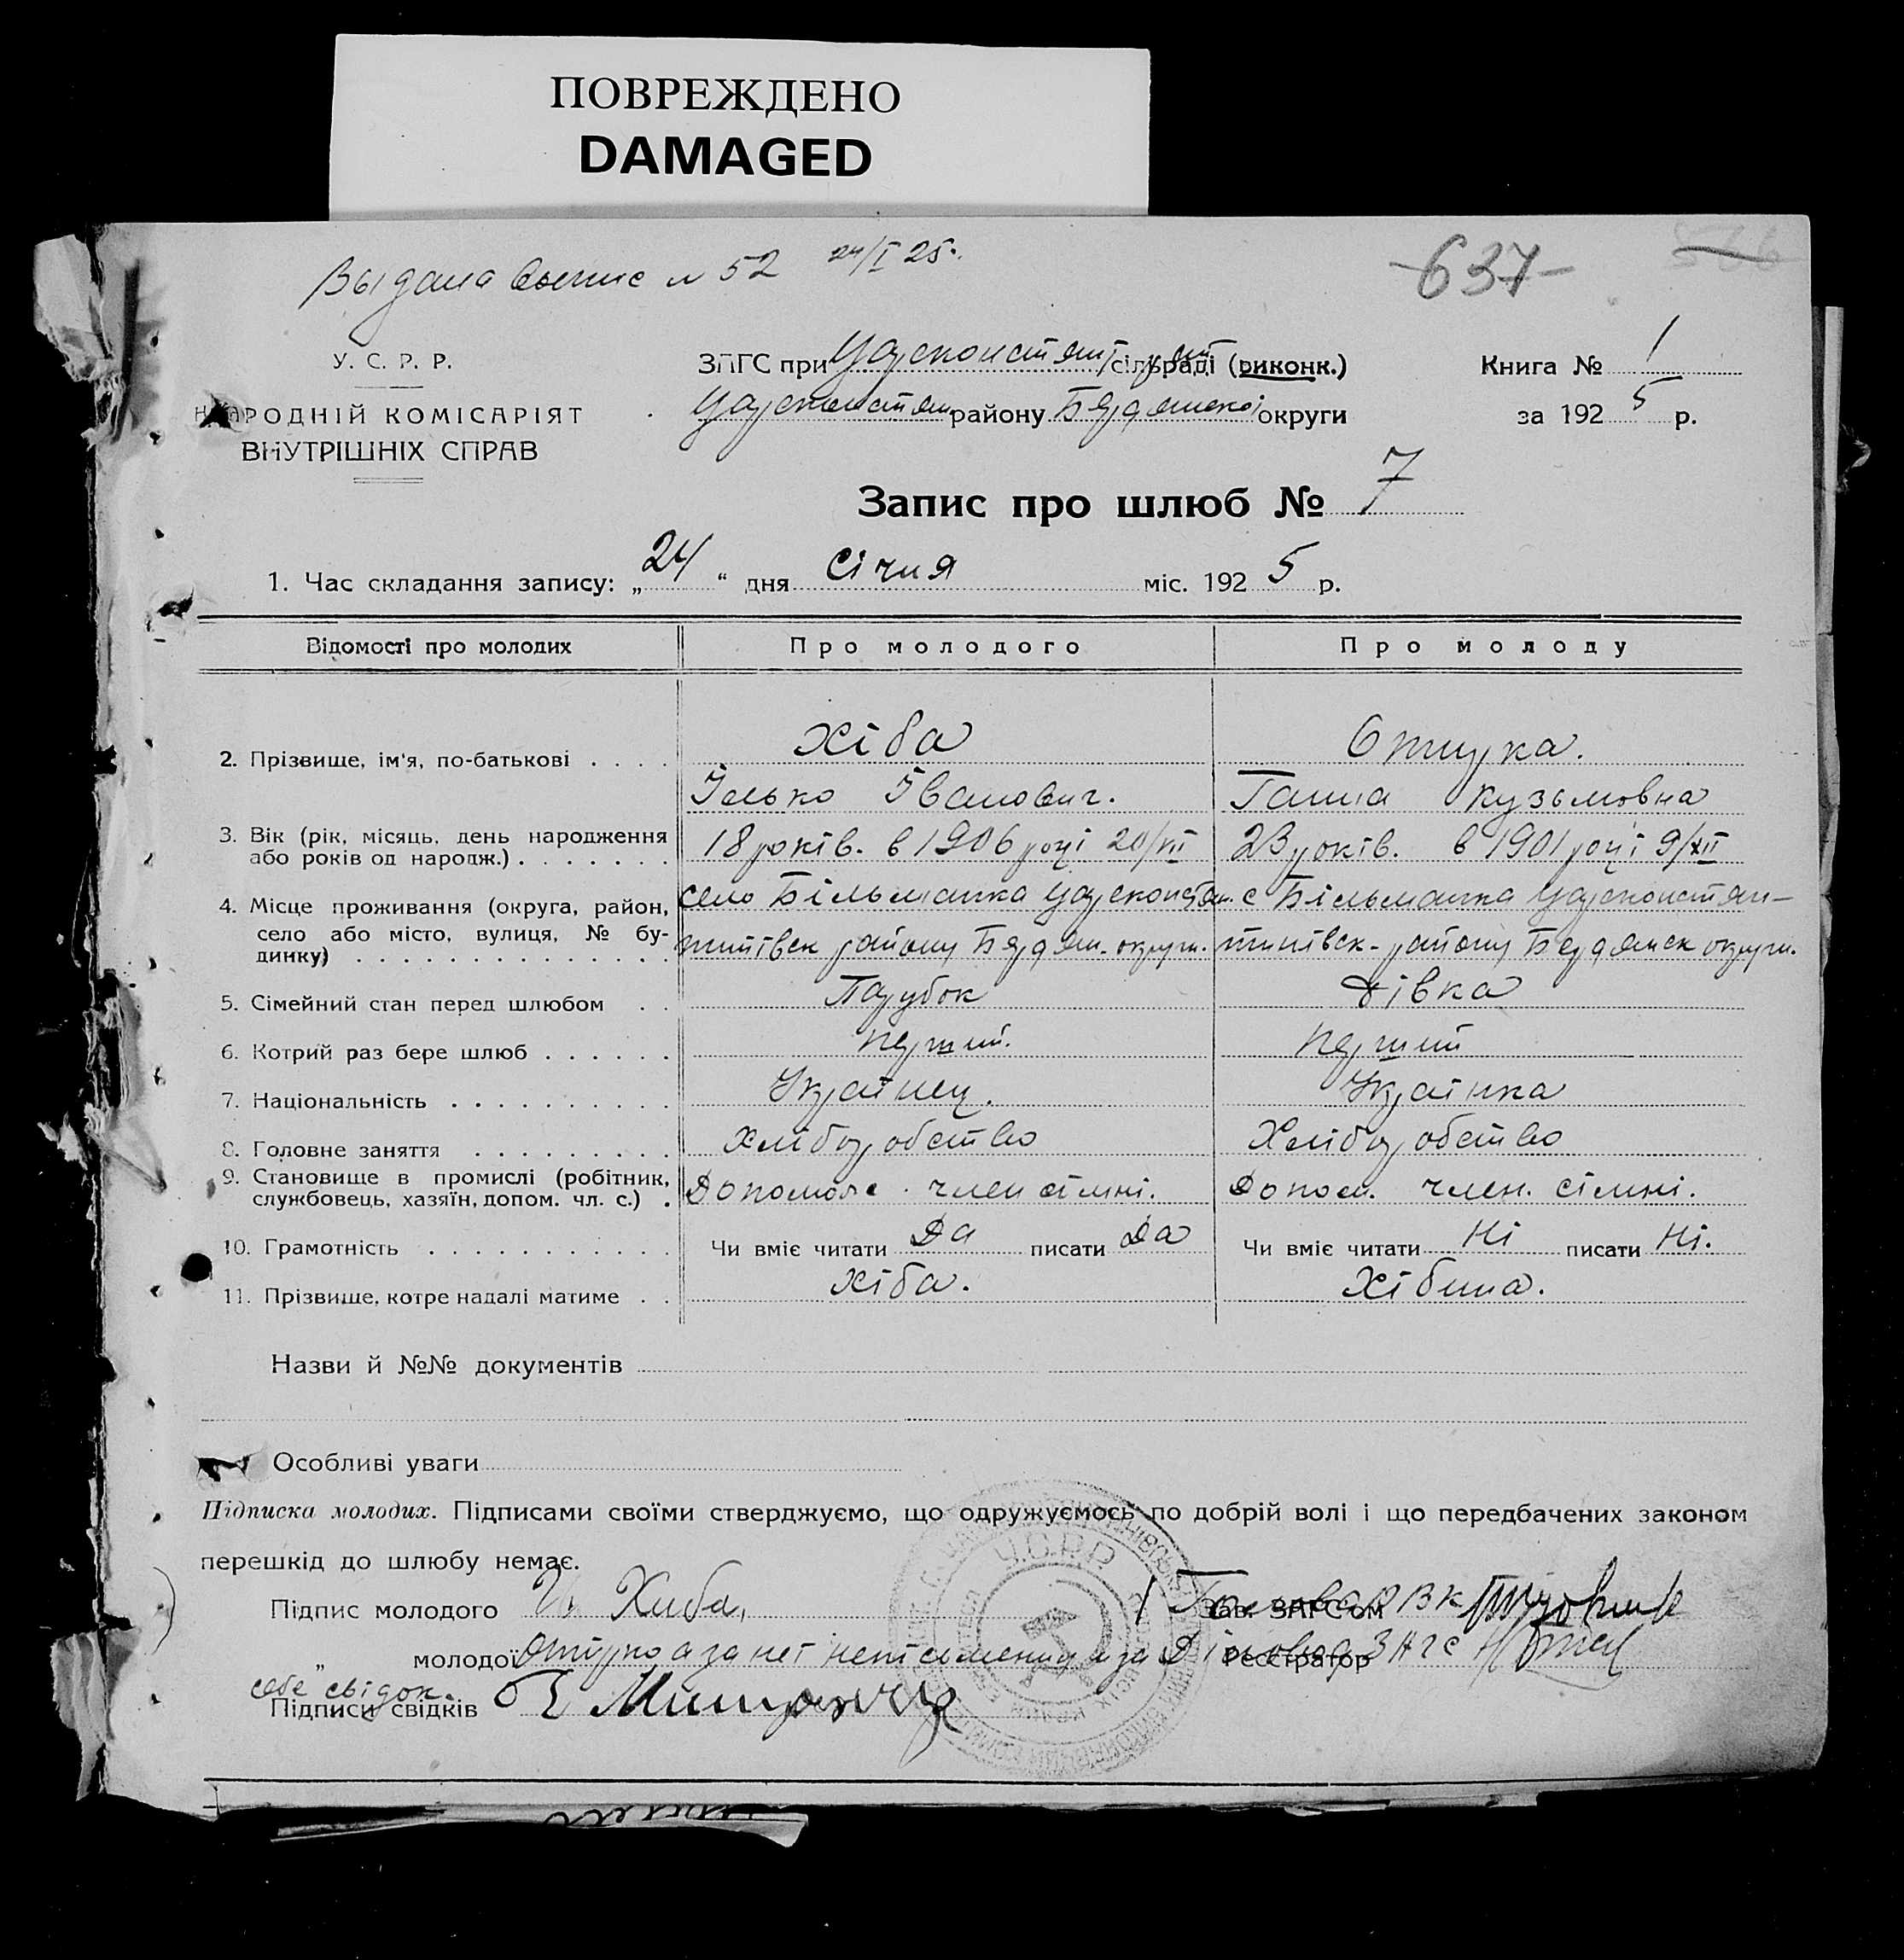 ПОВРЕЖДЕНО
DAMAGED
Выдана выпис № 52 24/I 25.
-637-
У. С. Р. Р.
НАРОДНІЙ КОМІСАРІЯТ
ВНУТРІШНІХ СПРАВ
ЗАГС при Царсконстянт сільраді (виконк.)
Царсконстян району Бердянської округи
Книга № 1
за 1925 р.
Запис про шлюб № 7
1. Час складання запису: „24“ дня Січня міс. 1925 р.
Відомості про молодих Про молодого Про молоду
2. Прізвище, ім'я, по-батькові Хіба Отирка.
Ілько Іванович. Ганна Кузьмовна
3. Вік (рік, місяць, день народження або років од народж.) 18 років. в 1906 році 20/VII 23 років. в 1901 році 9/XII
4. Місце проживання (округа, район, село або місто, вулиця, № будинку) село Більманка Царсконстян. с Більманка Царсконстян-
тинівск району Бердян. округи. тинівск. району Бердянск округи.
5. Сімейний стан перед шлюбом Парубок дівка
6. Котрий раз бере шлюб перший. перший
7. Національність Українец. Українка
8. Головне заняття Хліборобство Хліборобство
9. Становище в промислі (робітник, службовець, хазяїн, допом. чл. с.) Допомож. член сімні. Допом. член. сімні.
10. Грамотність Чи вміє читати Да писати Да Чи вміє читати Ні писати Ні.
11. Прізвище, котре надалі матиме Хіба. Хібина.
Назви й №№ документів
Особливі уваги
Підписка молодих. Підписами своїми стверджуємо, що одружуємось по добрій волі і що передбачених законом
перешкід до шлюбу немає.
Підпис молодого И. Хиба, Зав. ЗАГС'ом Голова РВК
„ молодої Отирко а за неї неписьменну и за Реєстратор Діловод ЗАГС
себе свідок.
Підписи свідків
У.С.Р.Р.